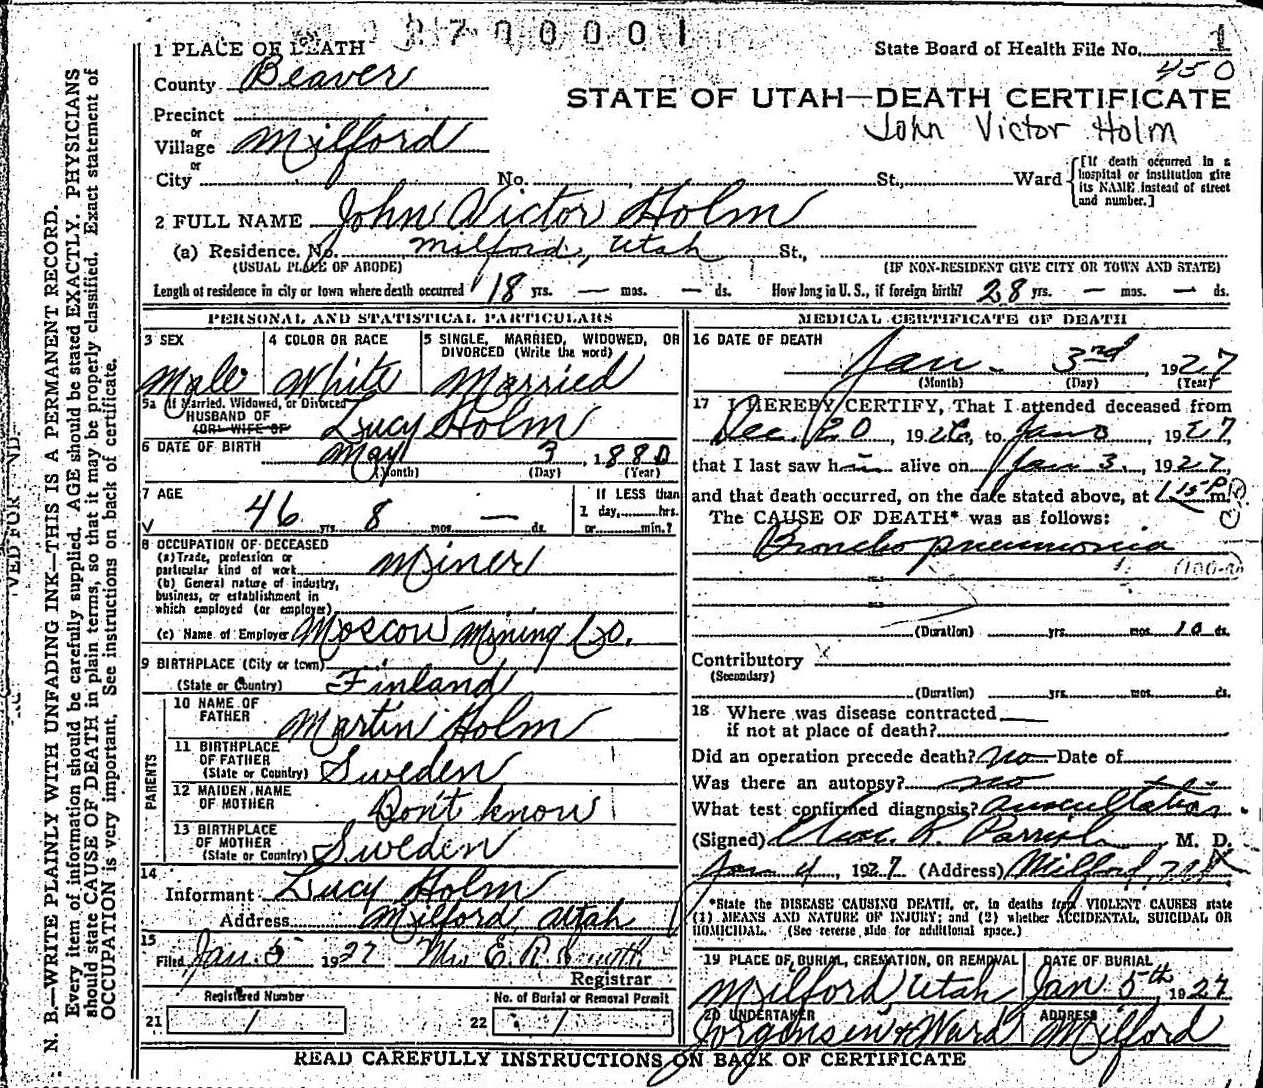 2700001
1 PLACE OF DEATH
State Board of Health File No. 1
County Beaver
450
STATE OF UTAH—DEATH CERTIFICATE
Precinct
John Victor Holm
or
Village Milford
or
City No. St., Ward
[If death occurred in a hospital or institution give its NAME instead of street and number.]
2 FULL NAME John Victor Holm
(a) Residence, No. Milford, Utah St.,
(USUAL PLACE OF ABODE) (IF NON-RESIDENT GIVE CITY OR TOWN AND STATE)
Length of residence in city or town where death occurred 18 yrs. — mos. — ds. How long in U. S., if foreign birth? 28 yrs. — mos. — ds.
PERSONAL AND STATISTICAL PARTICULARS
3 SEX
Male
4 COLOR OR RACE
White
5 SINGLE, MARRIED, WIDOWED, OR
DIVORCED (Write the word)
Married
5a If Married, Widowed, or Divorced
HUSBAND OF
(OR) WIFE OF Lucy Holm
6 DATE OF BIRTH May 3, 1880
(Month) (Day) (Year)
7 AGE
46 yrs. 8 mos. — ds.
If LESS than
1 day, hrs.
or min.?
8 OCCUPATION OF DECEASED
(a) Trade, profession or
particular kind of work Miner
(b) General nature of industry,
business, or establishment in
which employed (or employer)
(c) Name of Employer Moscow Mining Co.
9 BIRTHPLACE (City or town)
(State or Country) Finland
PARENTS
10 NAME OF
FATHER Martin Holm
11 BIRTHPLACE
OF FATHER
(State or Country) Sweden
12 MAIDEN NAME
OF MOTHER Don't know
13 BIRTHPLACE
OF MOTHER
(State or Country) Sweden
14
Informant Lucy Holm
Address Milford, Utah
15
Filed Jan. 5 1927 Mrs E. R. Smyth
Registrar
Registered Number
21 1
No. of Burial or Removal Permit
22 1
MEDICAL CERTIFICATE OF DEATH
16 DATE OF DEATH
Jan. 3rd, 1927
(Month) (Day) (Year)
17 I HEREBY CERTIFY, That I attended deceased from
Dec. 20, 1926, to Jan 3, 1927,
that I last saw him alive on Jan 3, 1927,
and that death occurred, on the date stated above, at 1 15 P m.
The CAUSE OF DEATH* was as follows:
Broncho pneumonia
(100-a)
(Duration) yrs. mos. 10 ds.
Contributory
(Secondary)
(Duration) yrs. mos. ds.
18 Where was disease contracted
if not at place of death?
Did an operation precede death? no Date of
Was there an autopsy? no
What test confirmed diagnosis? auscultation
(Signed) R. Parrish M. D.
Jan 4, 1927 (Address) Milford,
*State the DISEASE CAUSING DEATH, or, in deaths from VIOLENT CAUSES state
(1) MEANS AND NATURE OF INJURY; and (2) whether ACCIDENTAL, SUICIDAL OR
HOMICIDAL. (See reverse side for additional space.)
19 PLACE OF BURIAL, CREMATION, OR REMOVAL
Milford Utah
DATE OF BURIAL
Jan 5th 1927
20 UNDERTAKER
Jorgensen & Ward
ADDRESS
Milford
READ CAREFULLY INSTRUCTIONS ON BACK OF CERTIFICATE
N. B.—WRITE PLAINLY WITH UNFADING INK—THIS IS A PERMANENT RECORD.
Every item of information should be carefully supplied. AGE should be stated EXACTLY. PHYSICIANS
should state CAUSE OF DEATH in plain terms, so that it may be properly classified. Exact statement of
OCCUPATION is very important. See instructions on back of certificate.